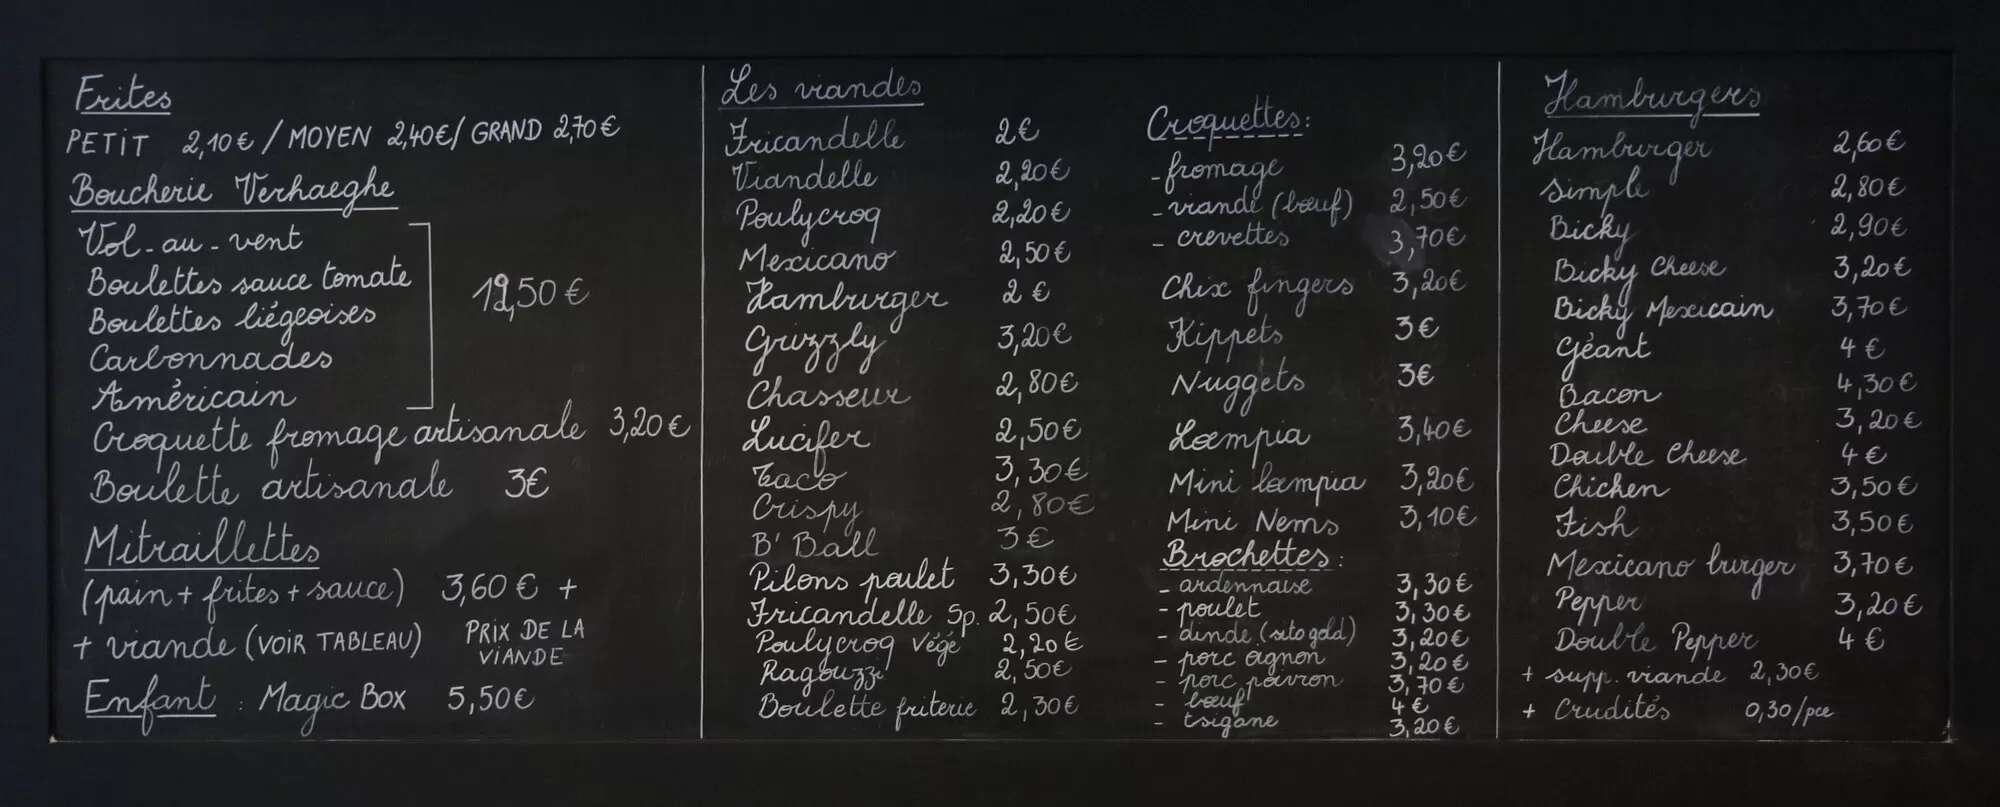 Frites
PETIT 2,10€ / MOYEN 2,40€ / GRAND 2,70€
Boucherie Verhaeghe
Vol-au-vent
Boulettes sauce tomate
Boulettes liégeoises
12,50€
Carbonnades
Américain
Croquette fromage artisanale 3,20€
Boulette artisanale 3€
Mitraillettes
(pain + frites + sauce) 3,60€ +
+ viande (VOIR TABLEAU) PRIX DE LA
VIANDE
Enfant : Magic Box 5,50€
Les viandes
Fricandelle 2€
Viandelle 2,20€
Poulycroq 2,20€
Mexicano 2,50€
Hamburger 2€
Grizzly 3,20€
Chasseur 2,80€
Lucifer 2,50€
Taco 3,30€
Crispy 2,80€
B'Ball 3€
Pilons poulet 3,30€
Fricandelle Sp. 2,50€
Poulycroq végé 2,20€
Ragouzzi 2,50€
Boulette friterie 2,30€
Croquettes:
- fromage 3,20€
- viande (bœuf) 2,50€
- crevettes 3,70€
Chix fingers 3,20€
Kippets 3€
Nuggets 3€
Lœmpia 3,40€
Mini lœmpia 3,20€
Mini Nems 3,10€
Brochettes:
- ardennaise 3,30€
- poulet 3,30€
- dinde (sitogold) 3,20€
- porc oignon 3,20€
- porc poivron 3,70€
- bœuf 4€
- tsigane 3,20€
Hamburgers
Hamburger 2,60€
simple 2,80€
Bicky 2,90€
Bicky Cheese 3,20€
Bicky Mexicain 3,70€
Géant 4€
Bacon 4,30€
Cheese 3,20€
Double Cheese 4€
Chicken 3,50€
Fish 3,50€
Mexicano burger 3,70€
Pepper 3,20€
Double Pepper 4€
+ supp. viande 2,30€
+ Crudités 0,30/pce